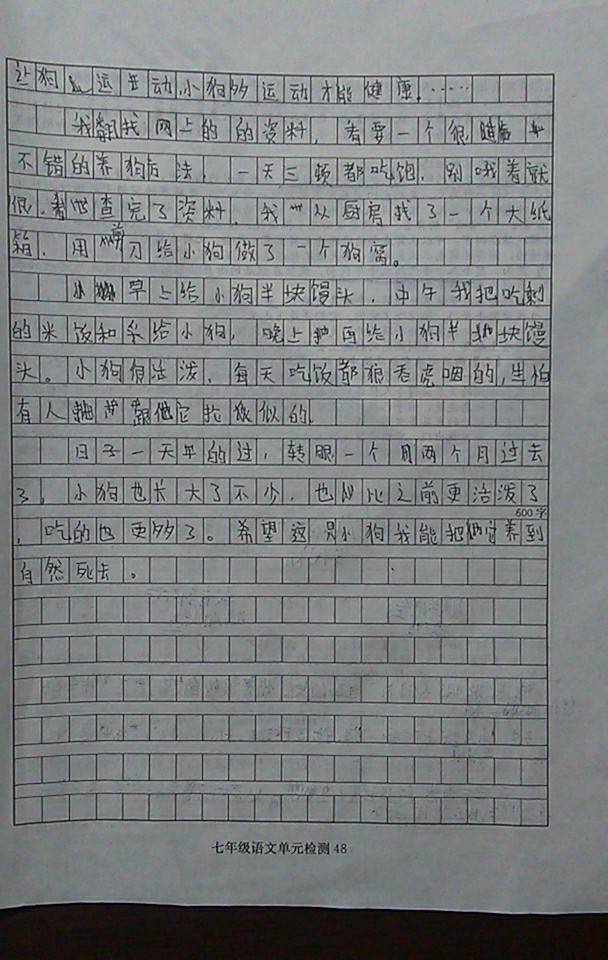 让狗运动,小狗多运动才能健康。……
我翻找网上的的资料,看要一个很
不错的养狗方法,一天三顿都吃饱,别哦着就
很。查完了资料,我从厨房找了一个大纸
箱,用剪刀给小狗做了一个狗窝。
早上给小狗半块馒头,中午我把吃剩
的米饭和乐给小狗,晚上再给小狗半块馒
头。小狗很活泼,每天吃饭都狼吞虎咽的,生怕
有人跟它抢食似的
日子一天平的过,转眼一个月两个月过去
了,小狗也长大了不少,也比之前更活泼了
600字
,吃的也更多了。希望这只小狗我能把它养到
自然死去。
七年级语文单元检测 48